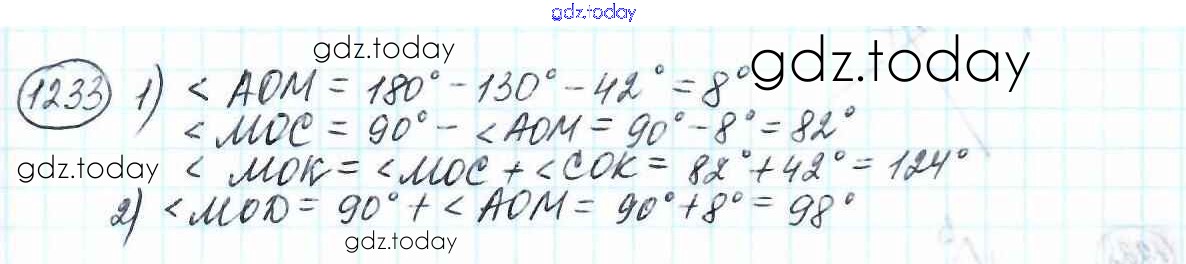 gdz.today
gdz.today
gdz.today
1233 1) < AOM = 180° - 130° - 42° = 8°
< MOC = 90° - < AOM = 90° - 8° = 82°
gdz.today
< MOK = < MOC + < COK = 82° + 42° = 124°
2) < MOD = 90° + < AOM = 90° + 8° = 98°
gdz.today